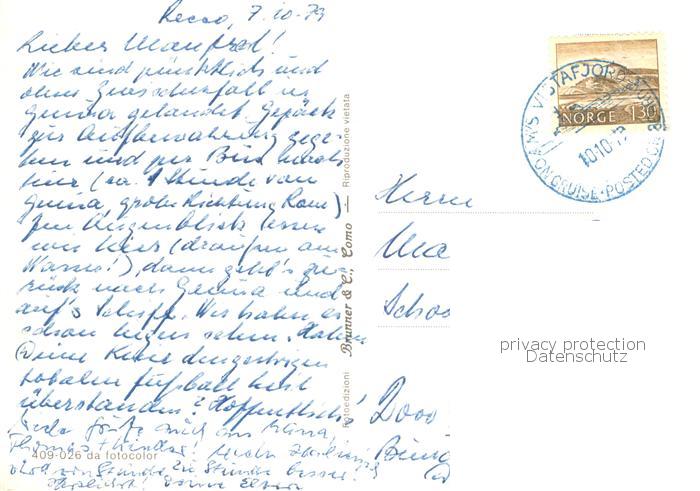 Recco, 7.10.79
Lieber Manfred!
Wir sind pünktlich und
ohne Zwischenfall in
Genua gelandet. Gepäck
zur Aufbewahrung gege-
ben und per Bus nach
hier (ca. 1 Stunde von
Genua, grobe Richtung Rom)
Im Augenblick essen
wir hier (draußen am
Wasser!), dann geht's zu-
rück nach Genua und
auf's Schiff. Wir haben es
schon liegen sehen. Haben
Deine Knie den gestrigen
Fußball heil
überstanden? Hoffentlich!
Grüße mir
Thomas
von Stunde zu Stunde besser.
Herzlichst! Deine Eltern
409-026 da fotocolor
Fotoedizioni Brunner & C., Como — Riproduzione vietata
NORGE 130
M/S VISTAFJORD
ON CRUISE · POSTED ON
10.10.79
Herrn
Ma
Schoo
2000
privacy protection
Datenschutz